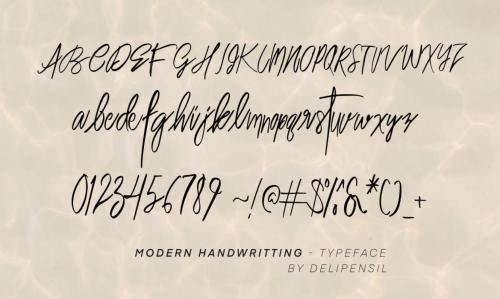 ABCDEFGHIJKLMNOPQRSTUVWXYZ
abcdefghijklmnopqrstuvwxyz
0123456789 ~!@#$%^&*()_+
MODERN HANDWRITTING - TYPEFACE
BY DELIPENSIL